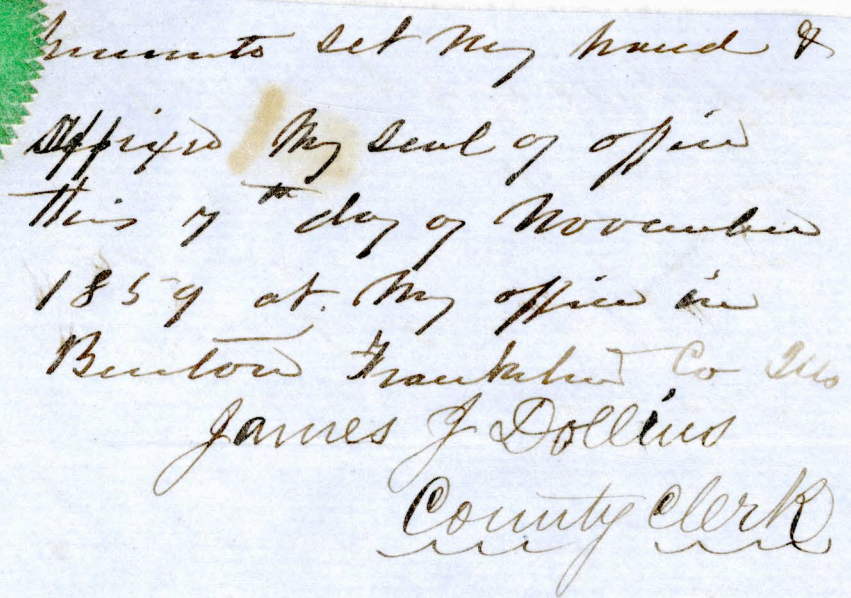 hereunto set my hand &
Affixed my seal of office
this 7th day of November
1859 at my office in
Benton Franklin Co Ills
James J Dollins
County Clerk